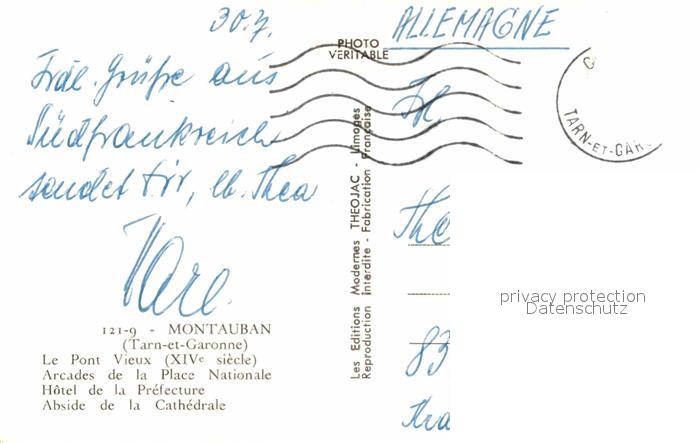 30.7.
Frdl. Grüße aus
Südfrankreich
sendet Dir, lb. Thea
121-9 - MONTAUBAN
(Tarn-et-Garonne)
Le Pont Vieux (XIVe siècle)
Arcades de la Place Nationale
Hôtel de la Préfecture
Abside de la Cathédrale
PHOTO
VÉRITABLE
Les Editions Modernes THEOJAC - Limoges
Reproduction interdite - Fabrication Française
ALLEMAGNE
TARN-ET-GAR
Frl.
The
83
privacy protection
Datenschutz